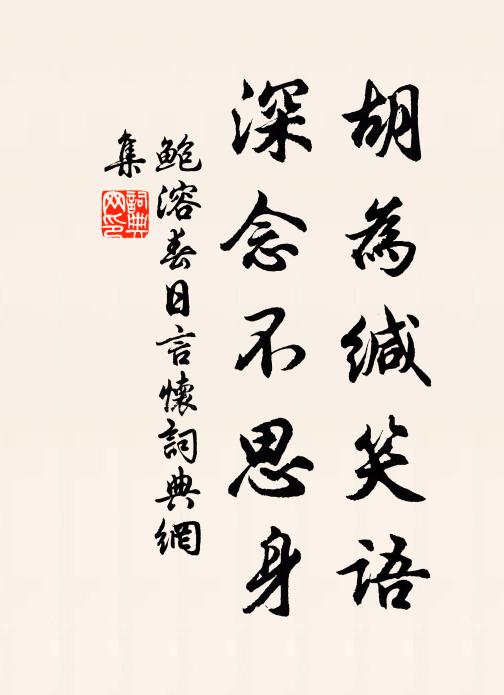 胡為緘笑語
深念不思身
鮑溶春日言懷詞典網
集
詞典網印